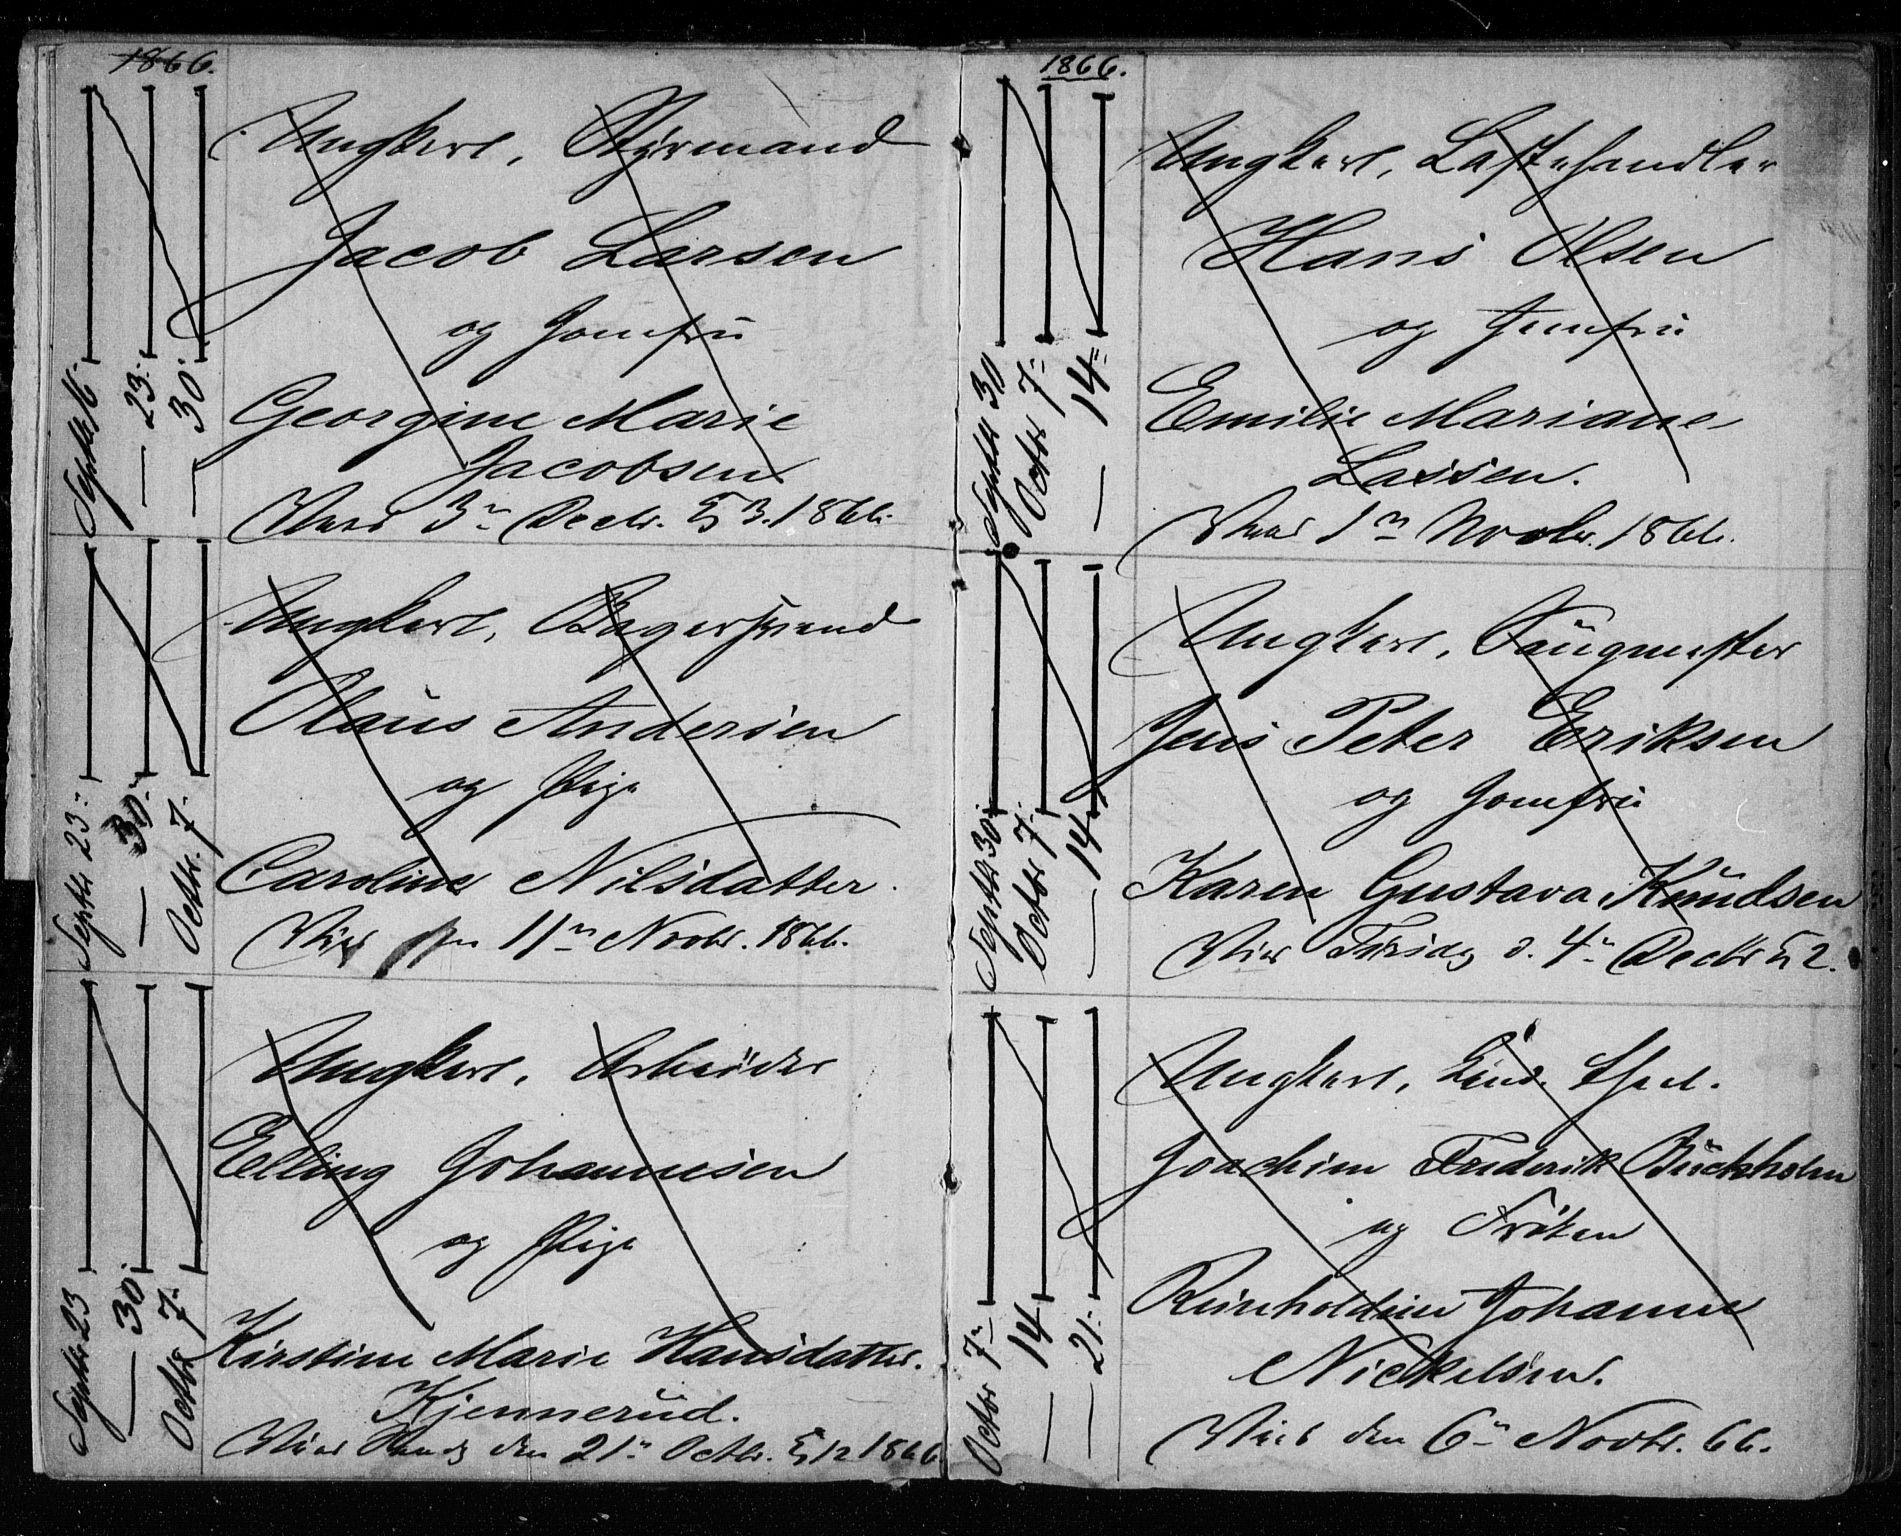 1866.
Septbr 16.
— 23.
— 30.
Ungkarl, Styrmand
Jacob Larsen
og Jomfrü
Georgine Marie
Jacobsen
Viede 3die Decbr. Kl 3. 1866.
Septbr 23.
— 30.
Octbr. 7.
Ungkarl, Bagersvend
Olaüs Andersen
og Pige
Caroline Nilsdatter.
Viede den 11te Novbr. 1866.
Septbr 23
— 30.
Octbr 7.
Ungkarl, Arbeider
Elling Johannesen
og Pige
Kirstine Marie Hansdatter.
Kjennerüd.
Viede den 21de Octbr. Kl 12 1866
1866.
Septbr 30
Octbr 7.
— 14.
Ungkarl, Lastehandler
Hans Olsen
og Jomfrü
Emilie Mariane
Lassen.
Viede 1ste Novbr. 1866.
Septbr 30.
Octbr 7.
— 14.
Ungkarl, Saügmester
Jens Peter Eriksen
og Jomfrü
Karen Gustava Knüdsen
Viede Tirsdag d. 4de Decbr Kl 2.
Octbr 7.
— 14
— 21.
Ungkarl, Cand. theol.
Joachim Frederik Büchholm
og Frøken
Reinholdine Johanne
Nickelsen.
Viede den 6te Novbr. 66.